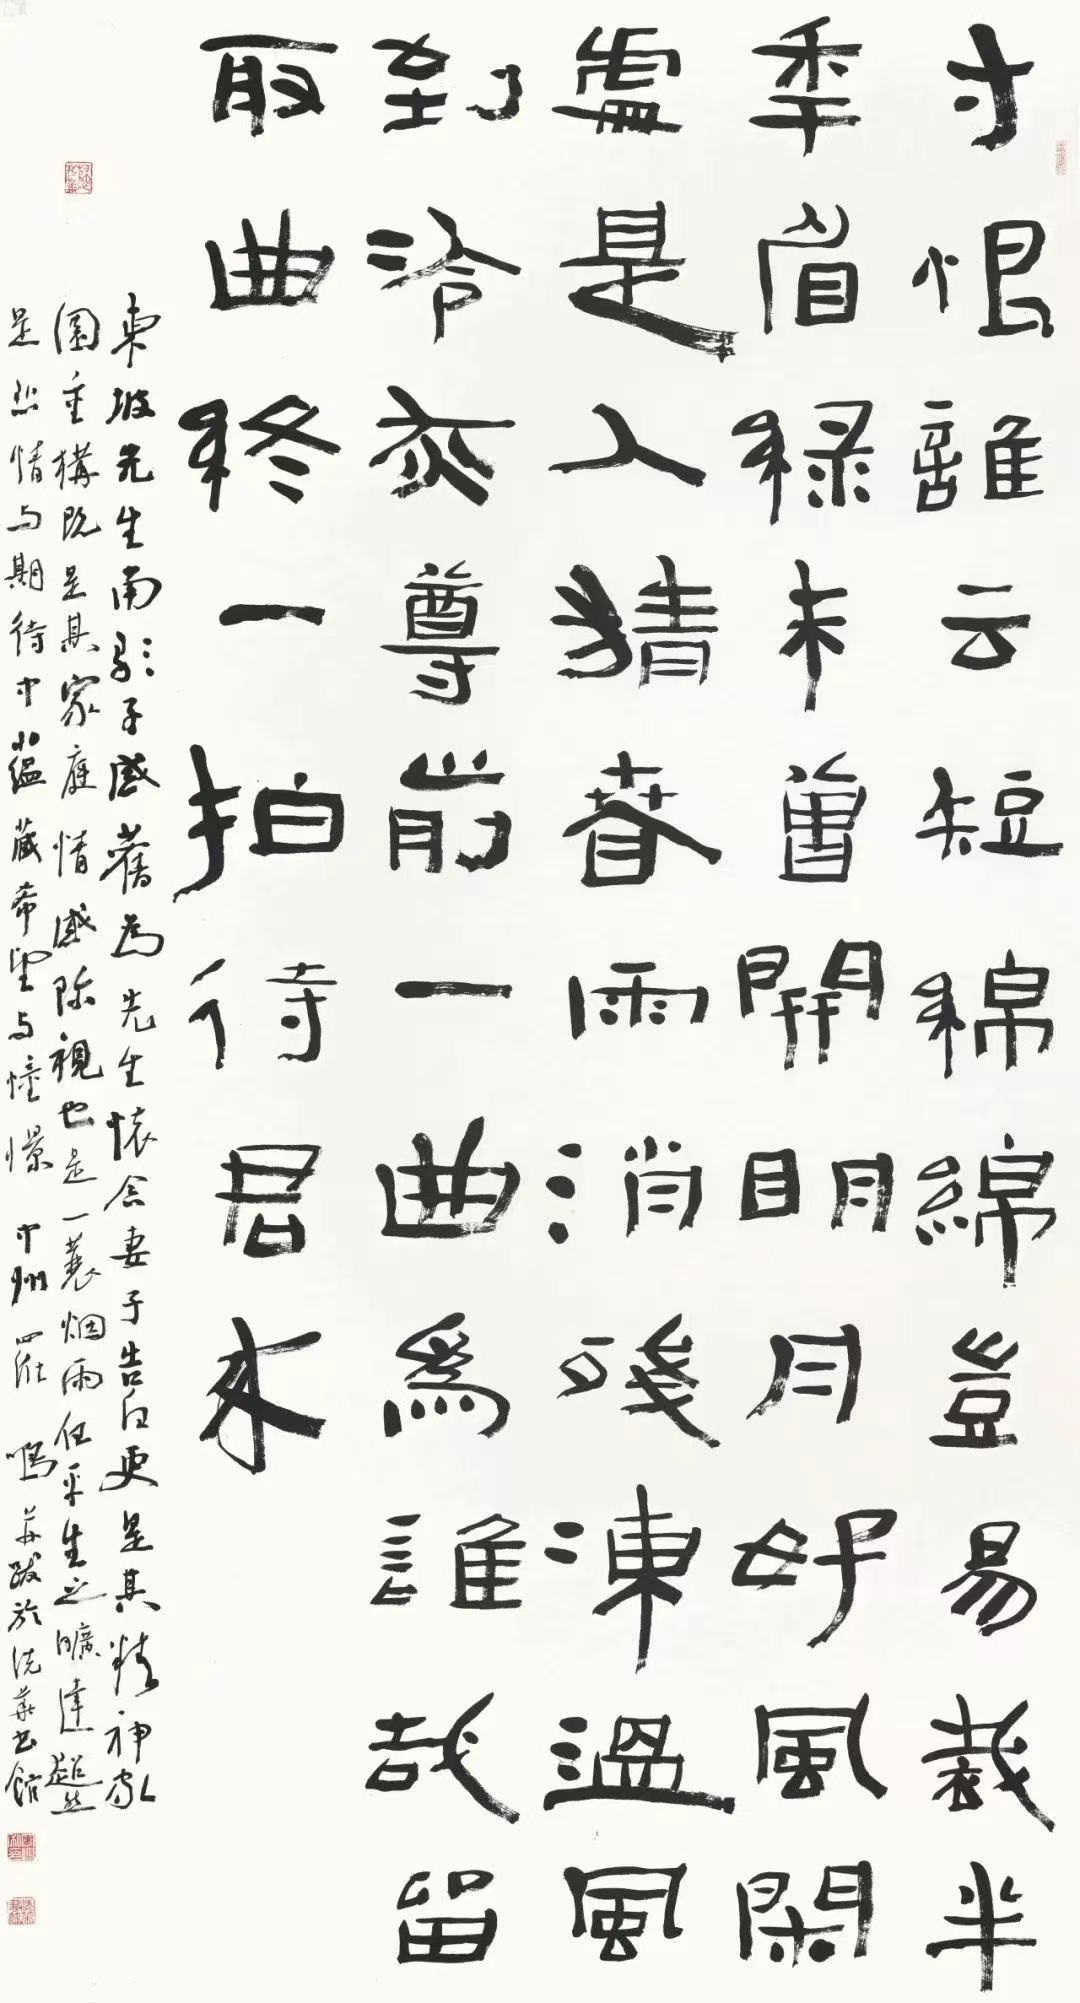 寸恨誰云短綿綿豈易裁半
秊眉綠未曾開明月好風閑
處是人猜春雨消殘凍溫風
到冷灰尊前一曲爲誰哉留
取曲終一拍待君來
東坡先生南歌子感舊為先生懷念妻子告白更是其精神家
園重構既是其家庭情感珍視也是一蓑烟雨任平生之曠達超然
是悲情与期待中蘊藏希望与憧憬 中州 鳴并跋於華書館